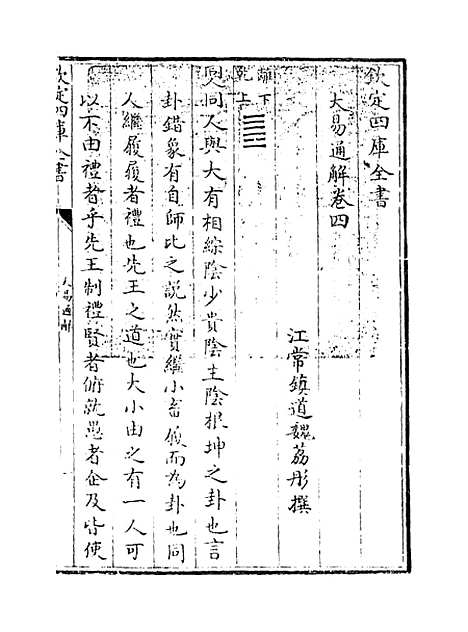 欽定四庫全書
大易通解卷四
江常鎮道魏荔彤撰
離下
乾上
同人與大有相綜陰少貴陰主陰根坤之卦也言
卦錯象有自師比之説然實繼小畜履而為卦也同
人繼履履者禮也先王之道也大小由之有一人可
以不由禮者乎先王制禮賢者俯就愚者企及皆使
欽定四庫全書
大易通解